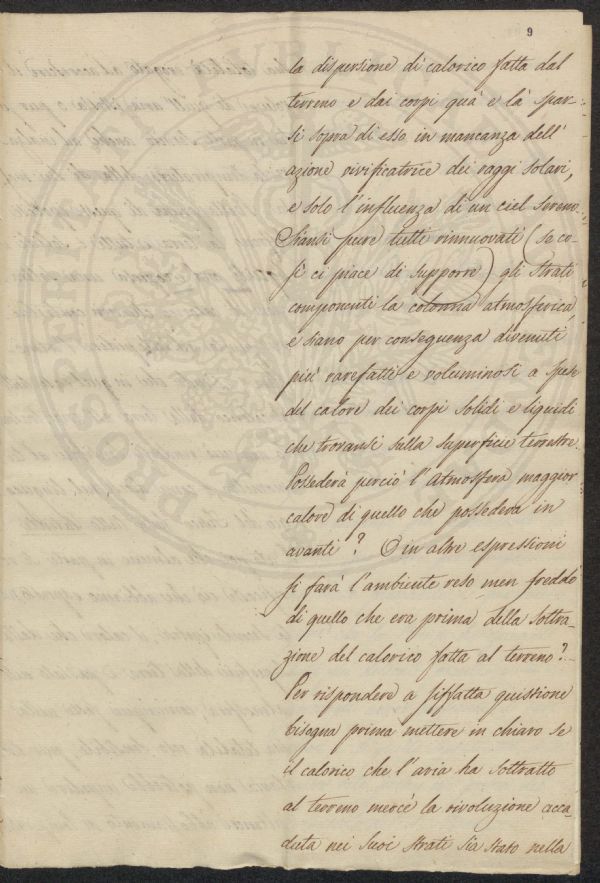 9
la dispersione di calorico fatta dal
terreno e dai corpi quà e là spar-
si sopra di esso in mancanza dell'
azione vivificatrice dei raggi solari,
e solo l'influenza di un ciel sereno.
Siansi pure tutti rinnuovati (se co-
sì ci piace di supporre) gli strati
componenti la colonna atmosferica,
e siano per conseguenza divenuti
più rarefatti e voluminosi a spese
del calore dei corpi solidi e liquidi
che trovansi sulla superficie terrestre.
Possederà perciò l'Atmosfera maggior
calore di quello che possedeva in
avanti? O in altre espressioni
si farà l'ambiente reso men freddo
di quello che era prima della sottra-
zione del calorico fatta al terreno?
Per rispondere a siffatta quistione
bisogna prima mettere in chiaro se
il calorico che l'aria ha sottratto
al terreno mercè la rivoluzione acca-
duta nei suoi strati sia stato nella